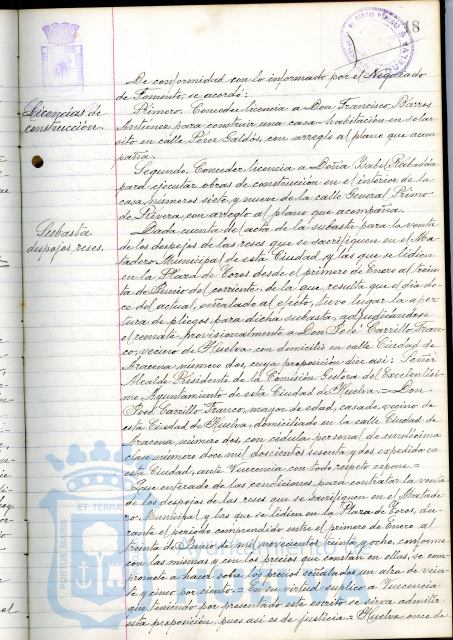 18
De conformidad con lo informado por el Negociado
de Fomento, se acordó:
Licencias de
construcción.
Primero. Conceder licencia a Don Francisco Barros
Antunez para construir una casa-habitación en solar
sito en calle Perez Galdós, con arreglo al plano que acom
paña.
Segundo. Conceder licencia a Doña Isabel Rabadán
para ejecutar obras de construcción en el interior de la
casa números siete y nueve de la calle General Primo
de Rivera con arreglo al plano que acompaña.
Subasta
despojos reses.
Dada cuenta del acta de la subasta para la venta
de los despojos de las reses que se sacrifiquen en el Ma-
tadero Municipal de esta Ciudad y las que se lidien
en la Plaza de Toros desde el primero de Enero al trein
ta de Junio del corriente, de la que resulta que el día do-
ce del actual, señalado al efecto, tuvo lugar la aper
tura de pliegos para dicha subasta, adjudicándose
el remate provisionalmente a Don José Carrillo Fran
co, vecino de Huelva con domicilio en calle Ciudad de
Aracena, número dos, cuya proposición dice así: Señor
Alcalde Presidente de la Comisión Gestora del Excelentísi-
mo Ayuntamiento de esta Ciudad de Huelva. = Don
José Carrillo Franco, mayor de edad, casado, vecino de
esta Ciudad de Huelva, domiciliado en la calle Ciudad de
Aracena, número dos, con cédula personal de undécima
clase número doce mil doscientos sesenta y dos expedido en
esta Ciudad, ante Vuecencia con todo respeto expone. =
Que enterado de las condiciones para contratar la venta
de los despojos de las reses que se sacrifiquen en el Matade
ro Municipal y las que se lidien en la Plaza de Toros, du-
rante el período comprendido entre el primero de Enero al
treinta de Junio de mil novecientos treinta y ocho, conforme
con las mismas y con los precios que constan en ellas, se com
promete a hacer sobre los precios señalados un alza de vein-
te y cinco por ciento. = En su virtud suplico a Vuecencia
que teniendo por presentado este escrito se sirva admitir
esta proposición, pues así es de justicia. = Huelva once de
PORTUS MARIS
ET TERRAE